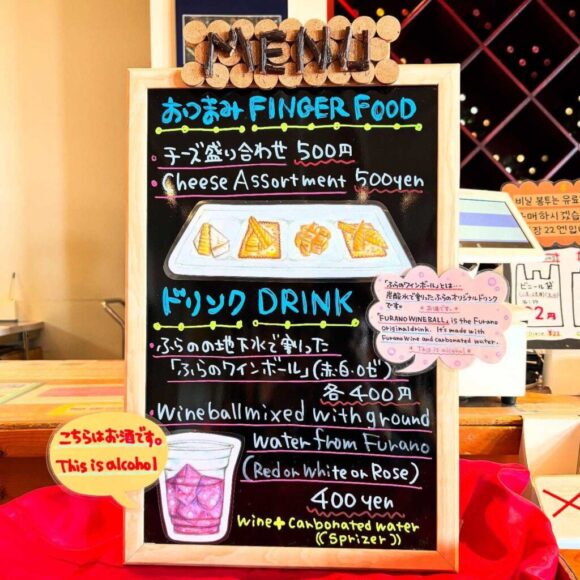 MENU
おつまみ FINGER FOOD
・チーズ盛り合わせ 500円
・Cheese Assortment 500yen
ドリンク DRINK
・ふらのの地下水で割った
「ふらのワインボール」(赤・白・ロゼ)
各400円
・Wineball mixed with ground
water from Furano
(Red or White or Rose)
400 yen
wine+Carbonated water
((Sprizer))
こちらはお酒です。
This is alcohol
「ふらのワインボール」とは…
炭酸水で割ったふらのオリジナルドリンク
です。
*お酒です。*
「FURANO WINE BALL」 is the Furano
Original drink. It's made with
Furano Wine and carbonated water.
* This is alcohol *
비닐 봉투는 유료
매하시겠습
장 22엔입니
ビニール袋
2円